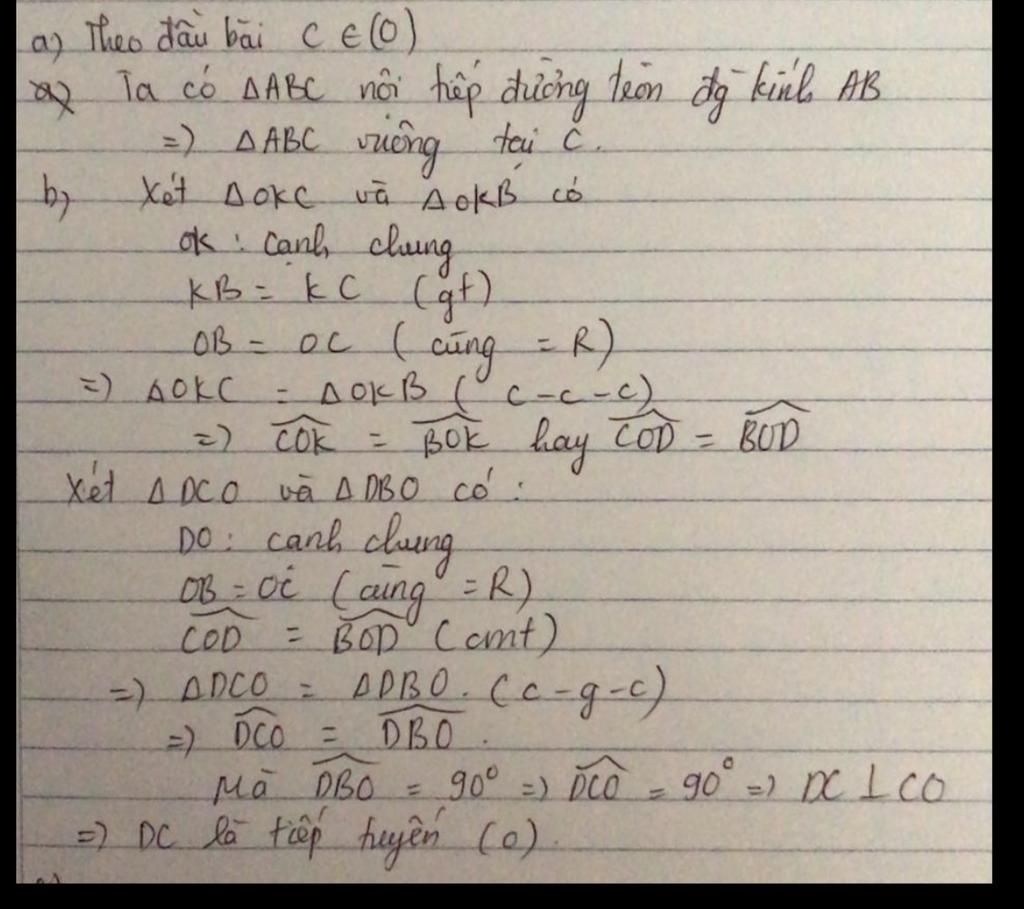 a) Theo đầu bài C ∈ (O)
a) Ta có ΔABC nội tiếp đường tròn đg kính AB
=) ΔABC vuông tại C.
b) Xét ΔOKC và ΔOKB có
OK : cạnh chung
KB = KC (gt)
OB = OC ( cùng = R)
=) ΔOKC = ΔOKB ( c-c-c)
=) \widehat{COK} = \widehat{BOK} hay \widehat{COD} = \widehat{BOD}
Xét ΔDCO và ΔDBO có :
DO : cạnh chung
OB = OC (cùng = R)
\widehat{COD} = \widehat{BOD} (cmt)
=) ΔDCO = ΔDBO. (c-g-c)
=) \widehat{DCO} = \widehat{DBO}.
Mà \widehat{DBO} = 90° =) \widehat{DCO} = 90° =) DC ⊥ CO
=) DC là tiếp tuyến (O).